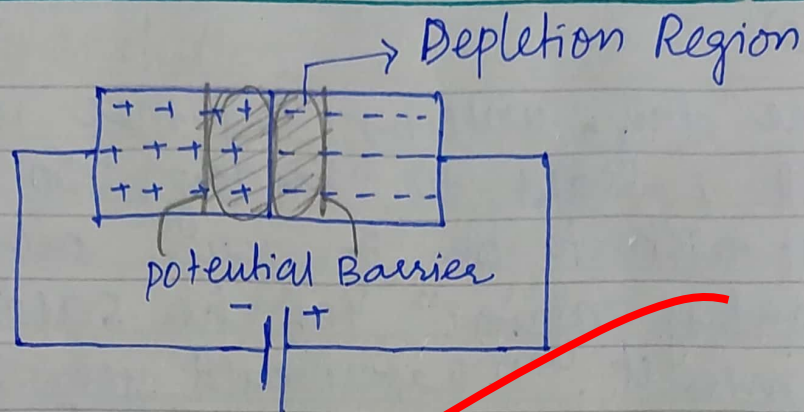 Depletion Region
+ + + + - - - - -
+ + + + - - - -
+ + + + - - - - -
potential Barrier
- +